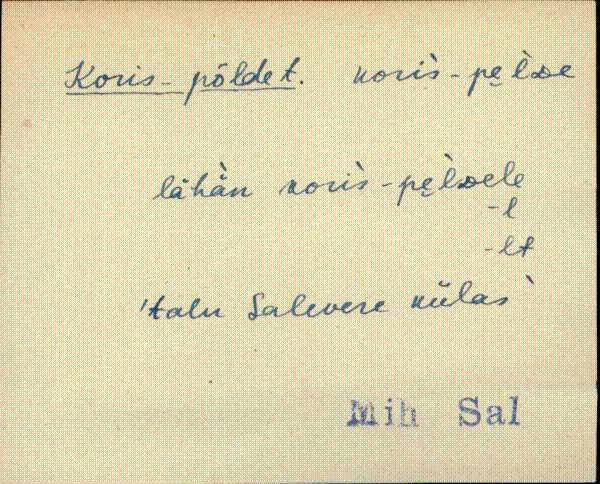 Koris-põldet. koris̀-pe̬l̀de
lähän koris̀-pe̬l̀dele
-l
-lt
'talu Salevere külas'
Mih Sal